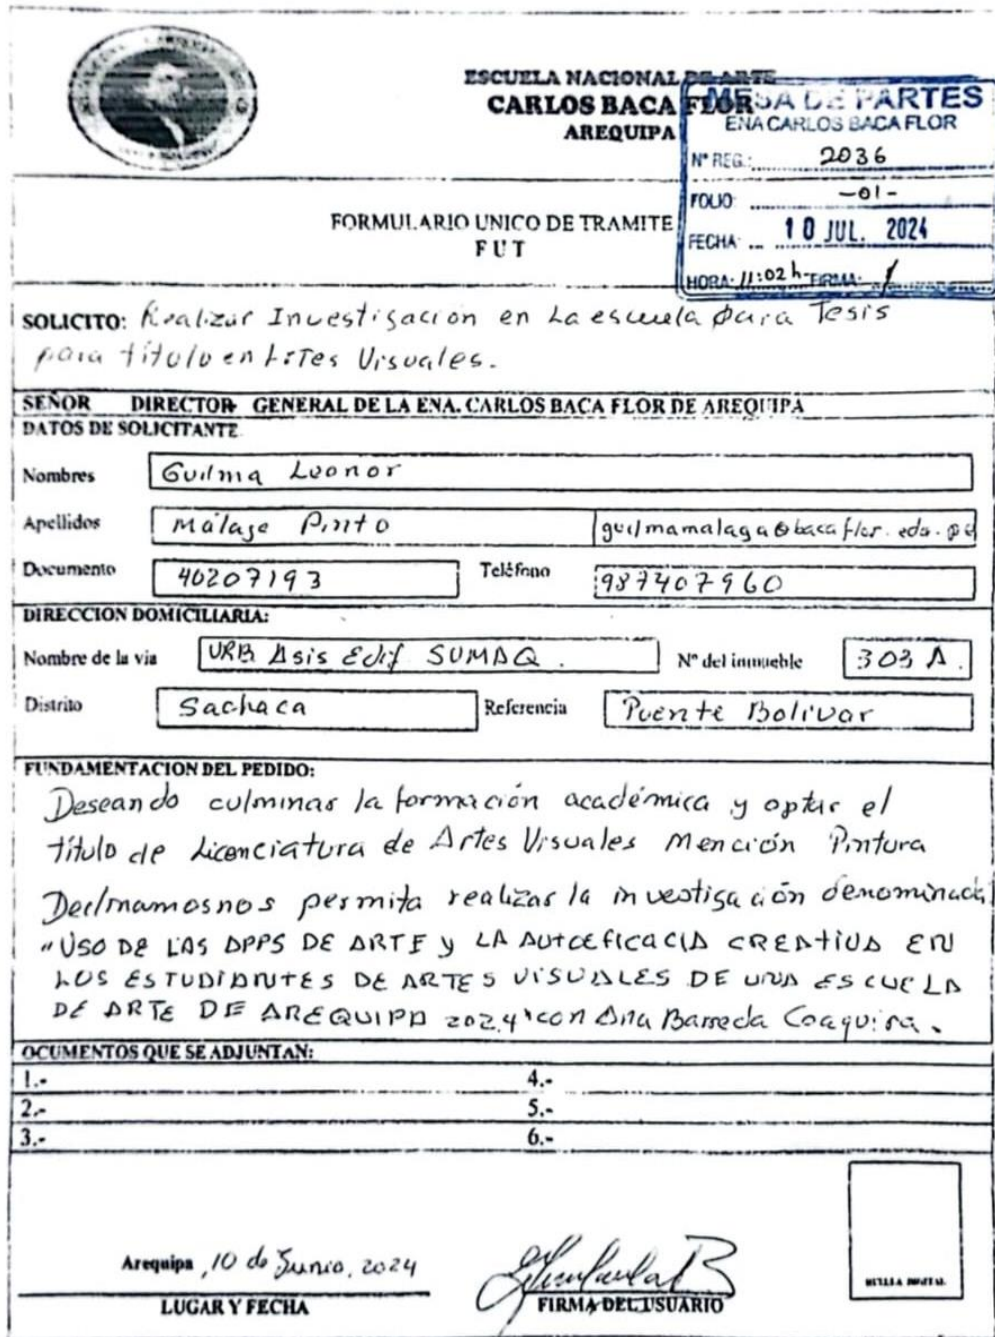 ESCUELA NACIONAL DE ARTE
CARLOS BACA FLOR
AREQUIPA
MESA DE PARTES
ENA CARLOS BACA FLOR
Nº REG.: 2036
FOLIO: -01-
FECHA: 10 JUL. 2024
HORA: 11:02 h FIRMA:
FORMULARIO UNICO DE TRAMITE
F U T
SOLICITO: Realizar Investigación en La escuela para Tesis
para título en Artes Visuales.
SEÑOR DIRECTOR GENERAL DE LA ENA. CARLOS BACA FLOR DE AREQUIPA
DATOS DE SOLICITANTE
Nombres Guilma Leonor
Apellidos Málaga Pinto guilmamalaga@bacaflor.edu.pe
Documento 40207193 Teléfono 987407960
DIRECCION DOMICILIARIA:
Nombre de la via URB Asis Edif SUMAQ. Nº del inmueble 303 A.
Distrito Sachaca Referencia Puente Bolivar
FUNDAMENTACION DEL PEDIDO:
Deseando culminar la formación académica y optar el
título de Licenciatura de Artes Visuales Mención Pintura
permita realizar la investigación denominada
"USO DE LAS APPS DE ARTE Y LA AUTOEFICACIA CREATIVA EN
LOS ESTUDIANTES DE ARTES VISUALES DE UNA ESCUELA
DE ARTE DE AREQUIPA 2024" con Ana Barreda Coaquira.
OCUMENTOS QUE SE ADJUNTAN:
1.- 4.-
2.- 5.-
3.- 6.-
Arequipa, 10 de Junio, 2024
LUGAR Y FECHA
FIRMA DEL USUARIO
HUELLA DIGITAL